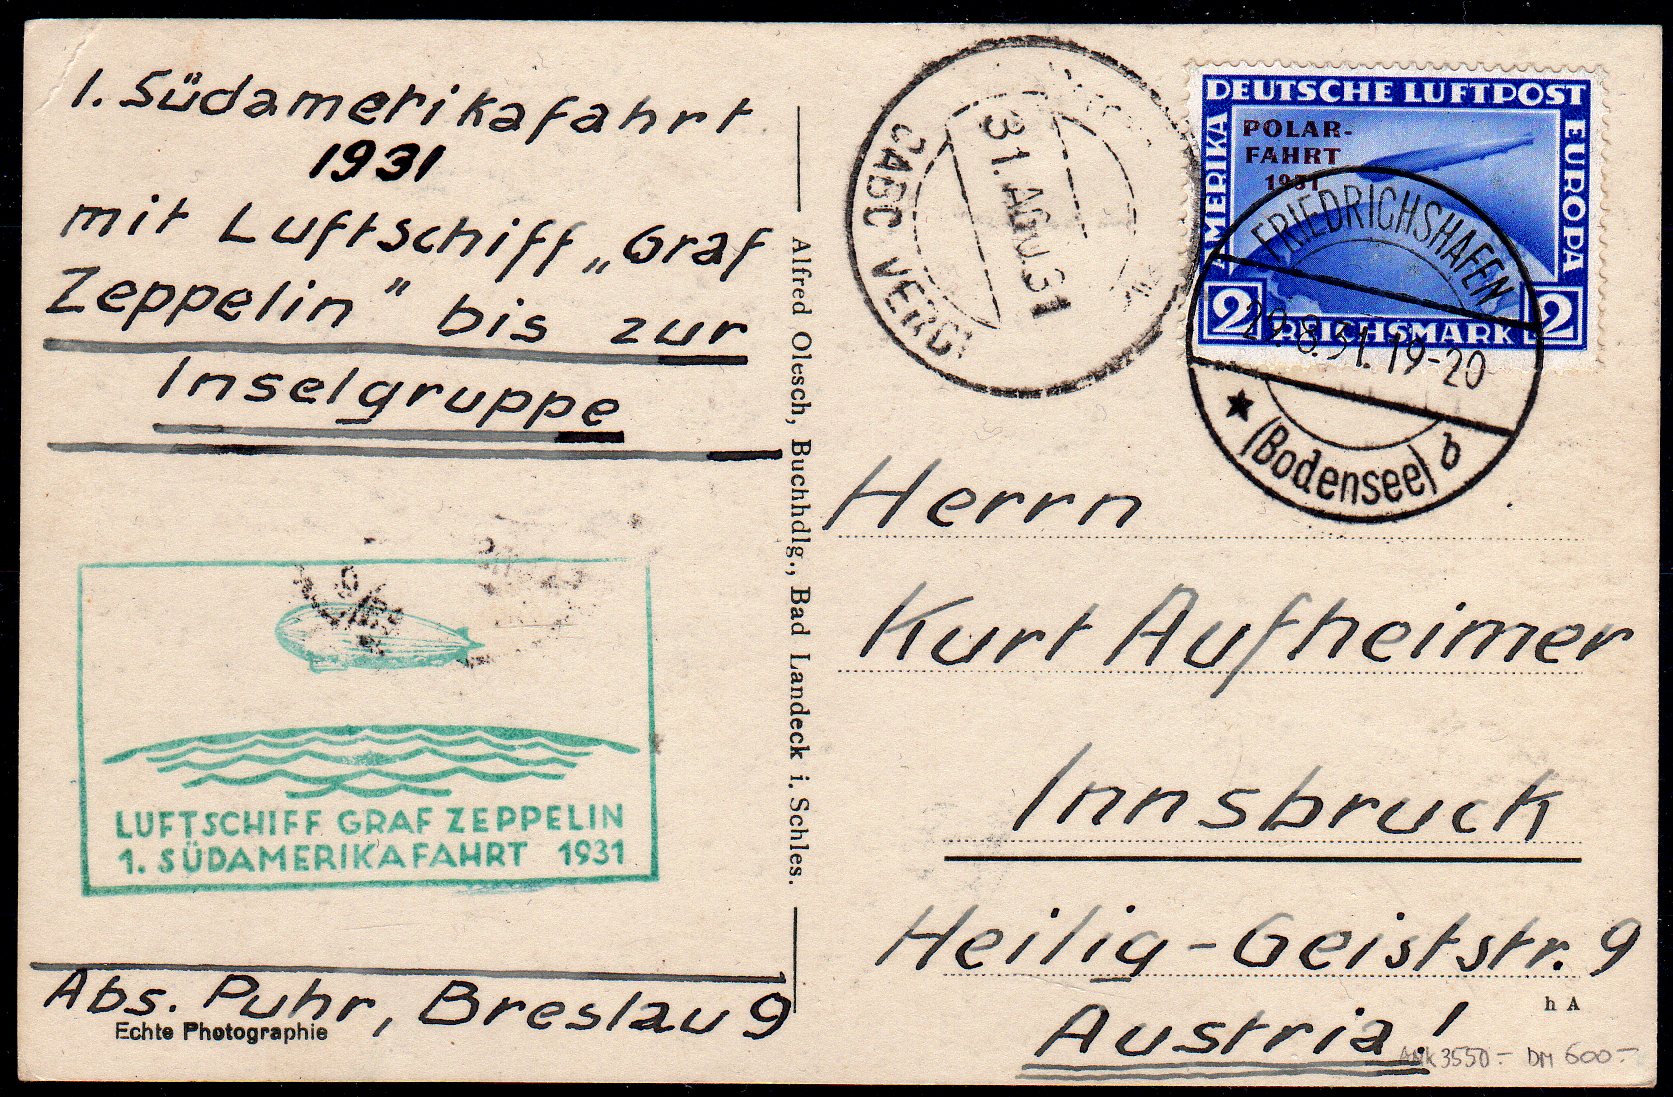 1. Südamerikafahrt
1931
mit Luftschiff „Graf
Zeppelin" bis zur
Inselgruppe
LUFTSCHIFF GRAF ZEPPELIN
1. SÜDAMERIKAFAHRT 1931
Abs. Puhr, Breslau 9
Echte Photographie
Alfred Olesch, Buchhdlg., Bad Landeck i. Schles.
31.AGO.31
CABO VERDE
DEUTSCHE LUFTPOST
AMERIKA
EUROPA
POLAR-
FAHRT
1931
2 REICHSMARK 2
FRIEDRICHSHAFEN
29.8.31.19-20
(Bodensee) b
Herrn
Kurt Aufheimer
Innsbruck
Heilig-Geiststr. 9
h A
Austria!
ANK 3550.- DM 600.-